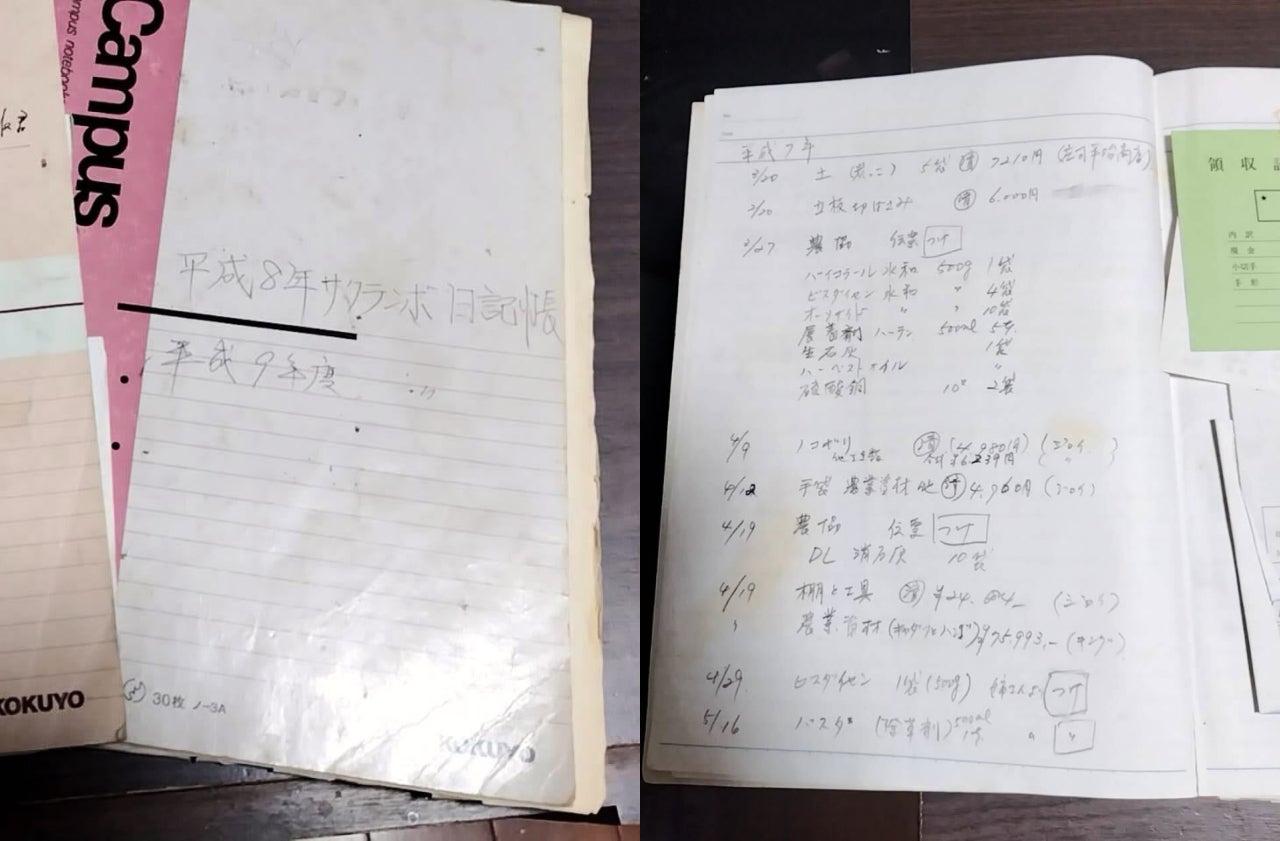 Campus
Campus notebook
平成8年サクランボ日記帳
平成9年度 〃
30枚 ノ-3A
KOKUYO
KOKUYO
平成7年
土 5袋 済 7210円 (庄司平治商店)
2/20 立枝切はさみ 済 6.000円
2/27 農協 伝票 つけ
ハイコラール 水和 500g 1袋
ビスダイセン 水和 〃 4袋
オーソサイド 〃 〃 10袋
展着剤 ハーテン 500ml 5本
生石灰 1袋
ハーベストオイル 〃
硫酸銅 10k 2袋
4/9 ノコギリ 済
4/12 手袋 農業資材 他 済 4,960円
4/19 農協 伝票 つけ
DL 消石灰 10袋
4/19 棚と工具 済 ¥24.
〃 農業資材 ¥75,993.-
4/29 ビスダイセン 1袋(500g) つけ
5/16 バスタ (除草剤) 500ml 1本 〃 〃
領収
内訳
現金
小切手
手形